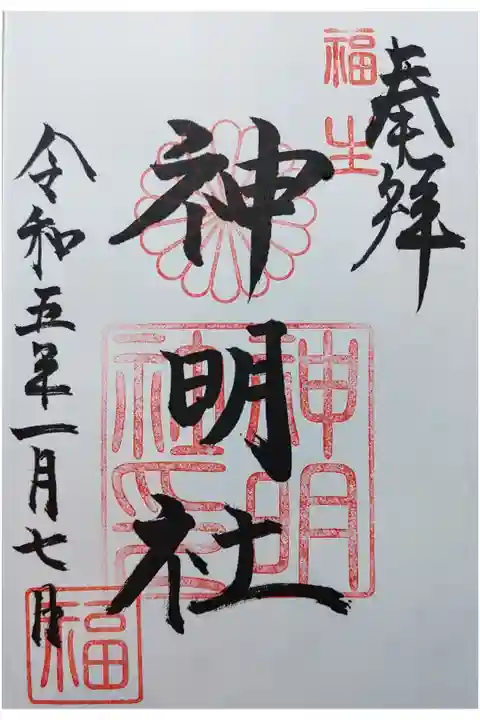 奉拝
福生
神明社
神明社印
令和五年一月七日
福